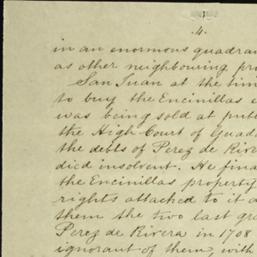 .4.
in an enormous quadran
as other neighbouring pro
San Juan at the tim
to buy the Encinillas e
was being sold at publ
the High Court of Guada
the debts of Perez de Rive
died insolvent. He fina
the Encinillas property
rights attached to it a
them the two last gra
Perez de Rivera in 1708
ignorant of them, with